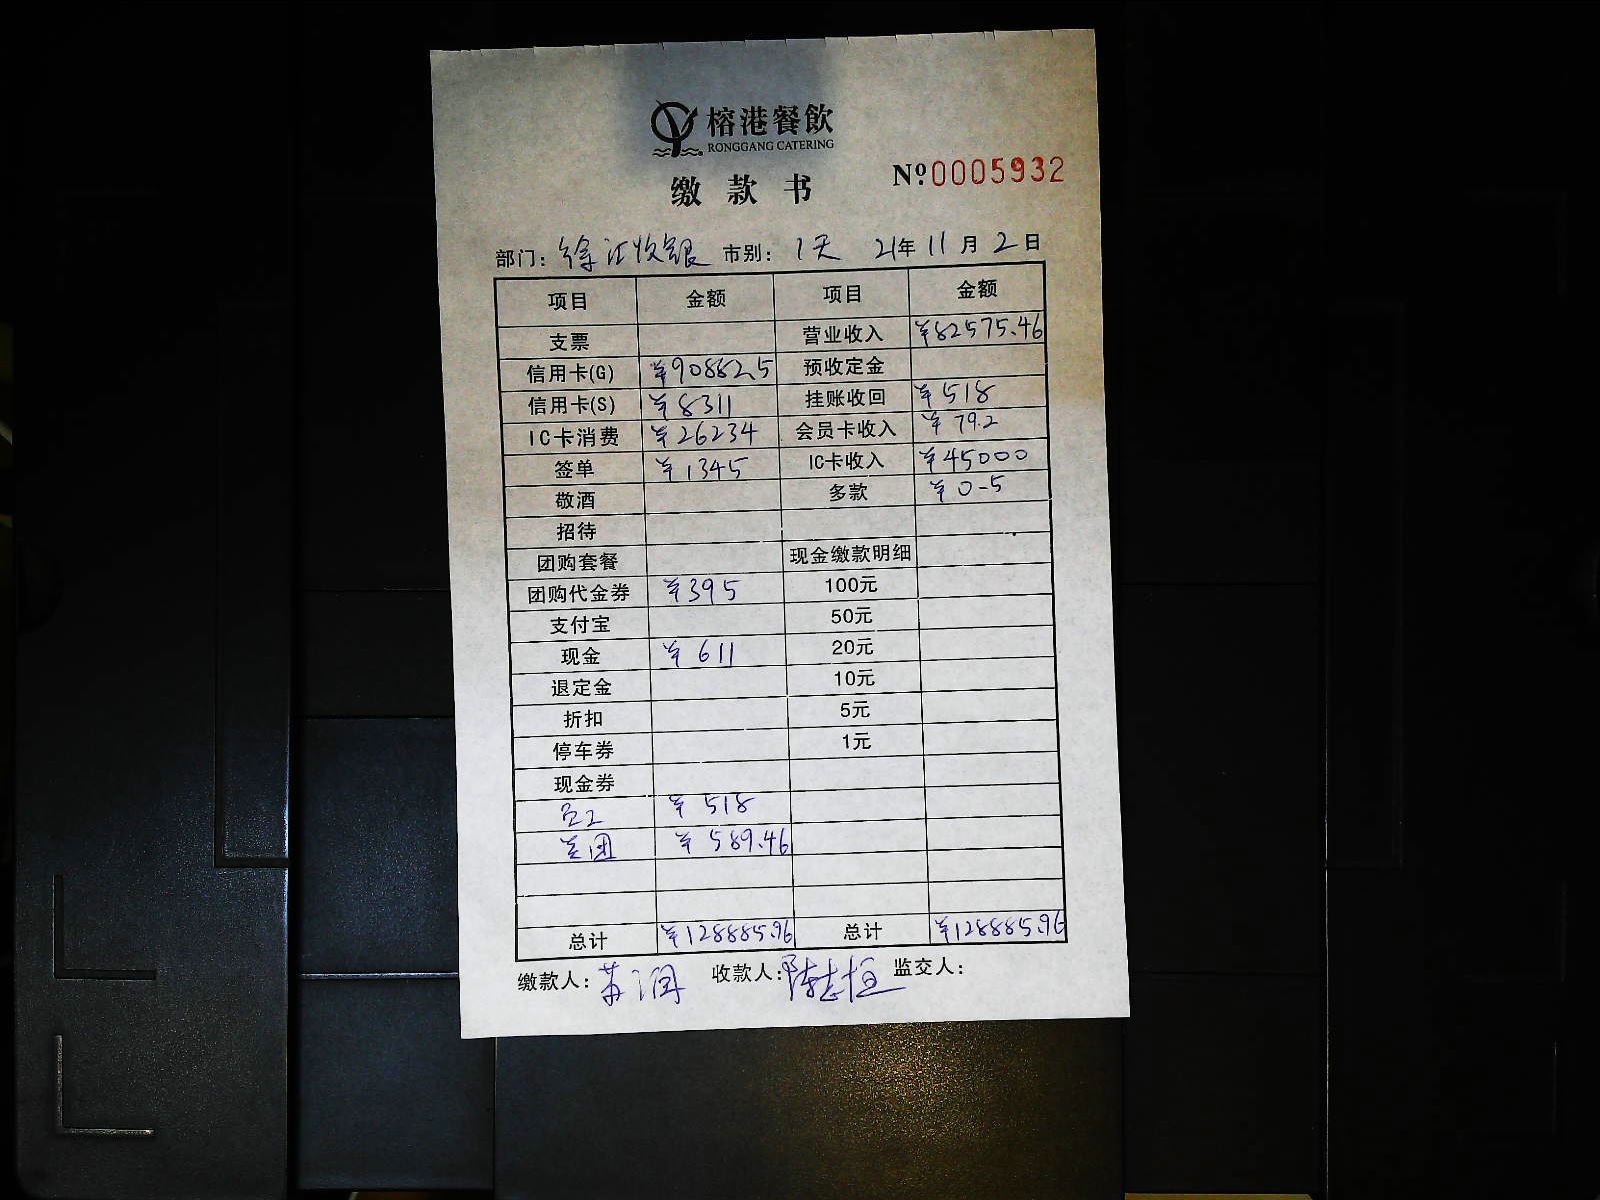 榕港餐飲
RONGGANG CATERING
缴款书
Nº 0005932
部门: 徐汇收银 市别: 1天 21年11月2日
项目 金额 项目 金额
支票 营业收入 ¥82575.46
信用卡(G) ¥90882.5 预收定金
信用卡(S) ¥8311 挂账收回 ¥518
IC卡消费 ¥26234 会员卡收入 ¥792
签单 ¥1345 IC卡收入 ¥45000
敬酒 多款 ¥0.5
招待
团购套餐 现金缴款明细
团购代金券 ¥395 100元
支付宝 50元
现金 ¥611 20元
退定金 10元
折扣 5元
停车券 1元
现金券
¥518
美团 ¥589.46
总计 ¥128885.96 总计 ¥128885.96
缴款人: 收款人: 陈志恒 监交人: